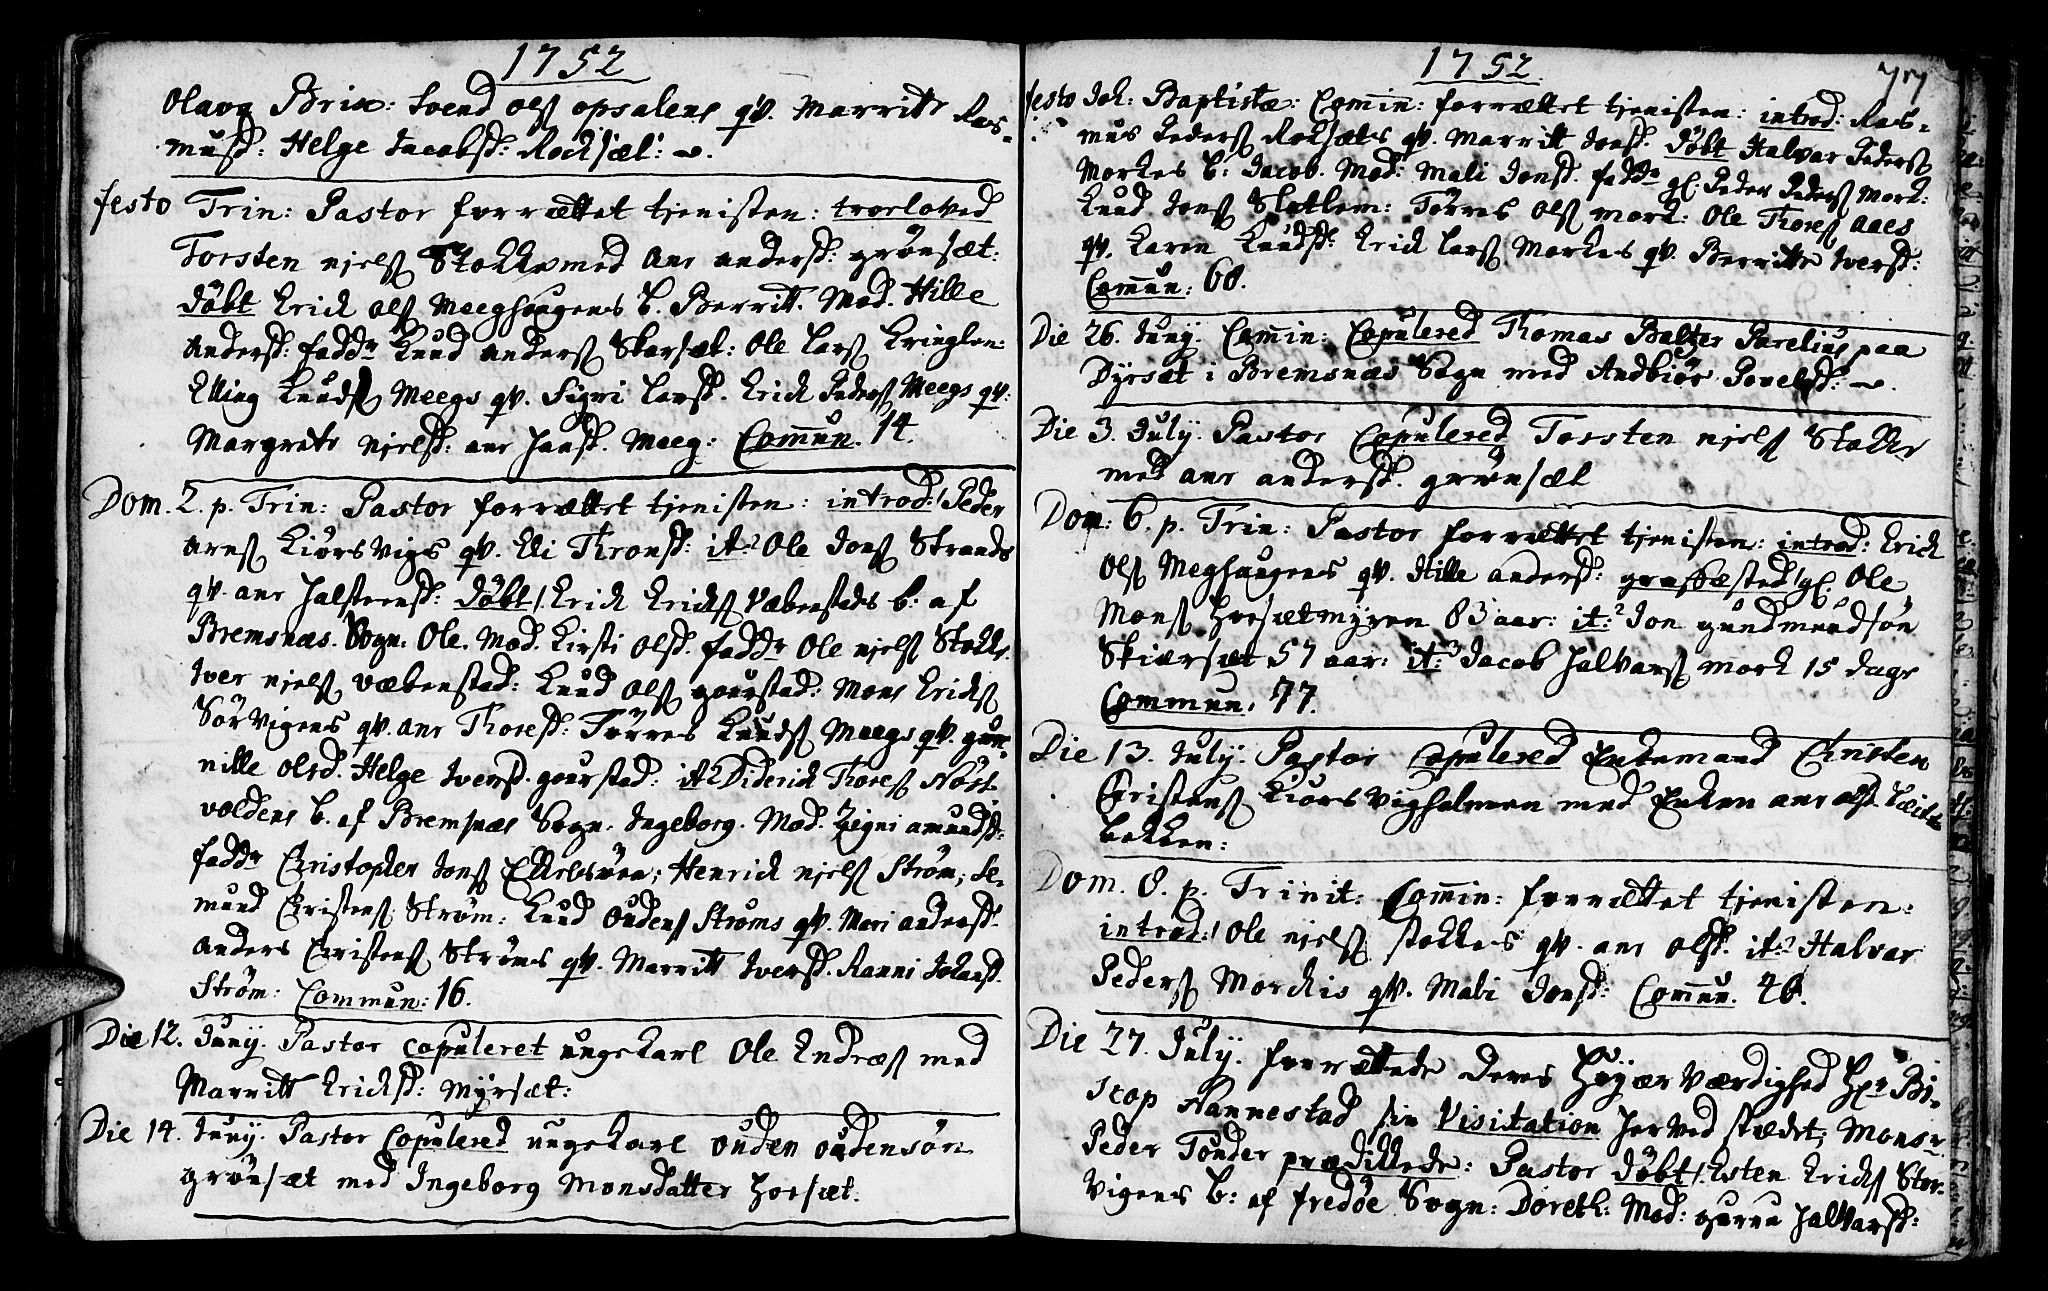 1752
Olava Brix: Svend Ols opsalens qv. Marritt Ras-
musd: Helge Jacobsd: Rocksæt:
festo Trin: Pastor forrættet tjenisten: troeloved
Torsten njels Stokke med Ane andersd: grønsæt:
døbt Erick Ols Meeghaugens b. Berritt. Mod. Hille
Andersd: fadd Knud Anders Skarsæt: Ole Lars Kringlen:
Elling Knuds Meegs qv. Sigri Larsd. Erick Peders Meegs qv:
Margrete Njelsd: ane Hansd. Meeg: Commun. 14.
Dom. 2. p. Trin: Pastor forrættet tjenisten: introd: Peder
arns Kiørsvigs qv. Eli Thronsd: it: Ole Jons Strands
qv. ane Halstensd: døbt Erick Ericks Væbenstads b: af
Bremsnæs. Sogn: Ole. Mod. Kirsti Olsd. fadd Ole njels Stokke.
Iver njels væbenstad: Knud Ols gourstad: Mons Ericks
Sørvigens qv. ane Thoresd: Tørres Knuds Meegs qv. gun-
nille olsd. Helge Iversd. gourstad: it Diderich Thores Nøst
voldens b. af Bremsnæs Sogn: Ingeborg. Mod. Zigni amundsd:
fadd Christopher Jons Henrich njels Strøm; Se-
mund Christens Strøm: Knud Oudens Strøms qv. Mari andersd.
Anders Christens Strøms qv. Marritt Iversd. Ranni Johansd.
Strøm: Commun: 16.
Die 12. Junij. Pastor copuleret ungekarl Ole Endræs med
Marritt Ericksd: Myrsæt:
Die 14. Junij. Pastor Copulered ungekarl ouden oudensøn
grønsæt med Ingeborg Monsdatter Horsæt.
1752
77
festo Joh: Baptistæ: Comin: forrættet tjenisten: introd: Ras-
mus Peders Roksæts qv. Marritt Jonsd. døbt Halvar Peders
Morkes b: Jacob. Mod: Mali Jonsd. fadd gl. Peder Peders Mork:
Knud Jons Slatlem: Tørres Ols mork: Ole Thores aaes
qv. Karen Knudsd: Erick Lars Morkes qv. Berritte Iversd:
Commun: 68.
Die 26. Junij. Comin: Copulered Thomas Baltzer Parelius paa
Dyrsæt i Bremsnæs Sogn med Andbiør Povelsd:
Die 3. Julij. Pastor Copulered Torsten njels Stokke
med ane andersd. grønsæt
Dom: 6. p. Trin: Pastor forrættet tjenisten: introd: Erick
Ols Meghaugens qv. Hille andersd: græsfæsted gl. Ole
Mons Horsætmyren 83 aar: it: Jon gundmundsøn
Skiærsæt 57 aar: it: Jacob Halvars mork 15 dage
Commun: 77.
Die 13. Julij. Pastor copulered Enkemand Christen
Christens Kiørsvigholmen med Enken ane olsd.
bakken:
Dom. 8. p. Trinit: Comin: forrættet tjenisten:
introd: Ole njels stokkes qv. ane olsd. it: Halvar
Peders Morckis qv. Mali Jonsd: Commun. 46.
Die 27. Julij. forrættede deres Høyærværdighed Hr Bi-
scop Nannestad sin Visitation her ved stædet; Monsr.
Peder Tønder prædikkede: Pastor døbt Esten Ericks Stor-
vigens b: af fredøe Sogn: Doreth: Mod: gurru Halvarsd: